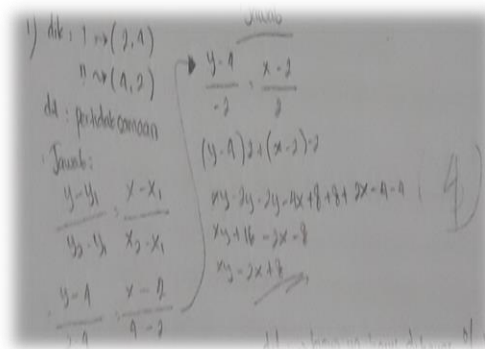 1) dik: 1 → (2,4)
11 → (4,2)
dit: pertidaksamaan
Jawab:
y-y₁ / y₂-y₁ = x-x₁ / x₂-x₁
y-4 / 2-4 = x-2 / 4-2
Jawab
y-4 / -2 = x-2 / 2
(y-4)2+(x-2)-2
xy-2y-2y-4x+8+8+2x-4-4
xy+16-2x-8
xy-2x+8
4